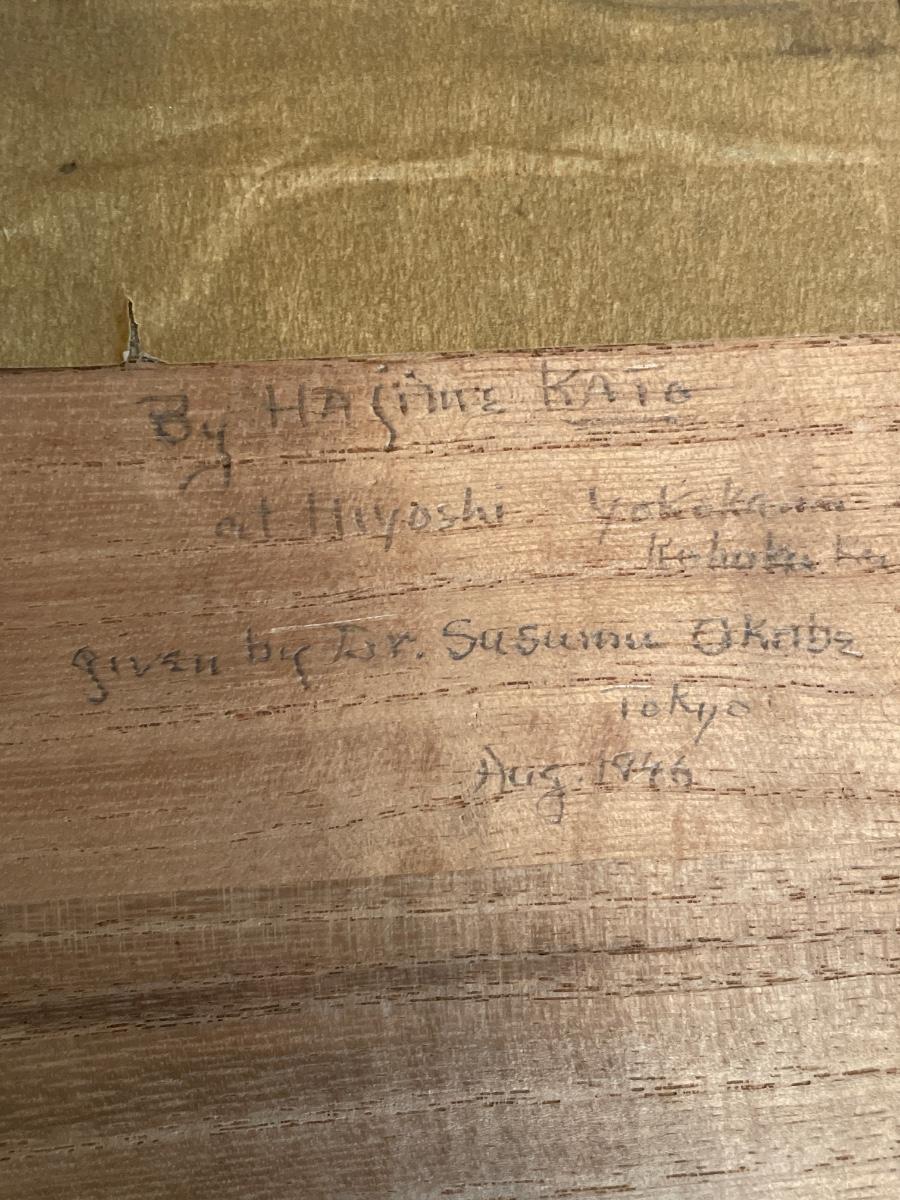 By HAjime KATo
at Hiyoshi Yokokama
Kohoku Ku
given by Dr. Susumu OKabe
Tokyo
Aug. 1946